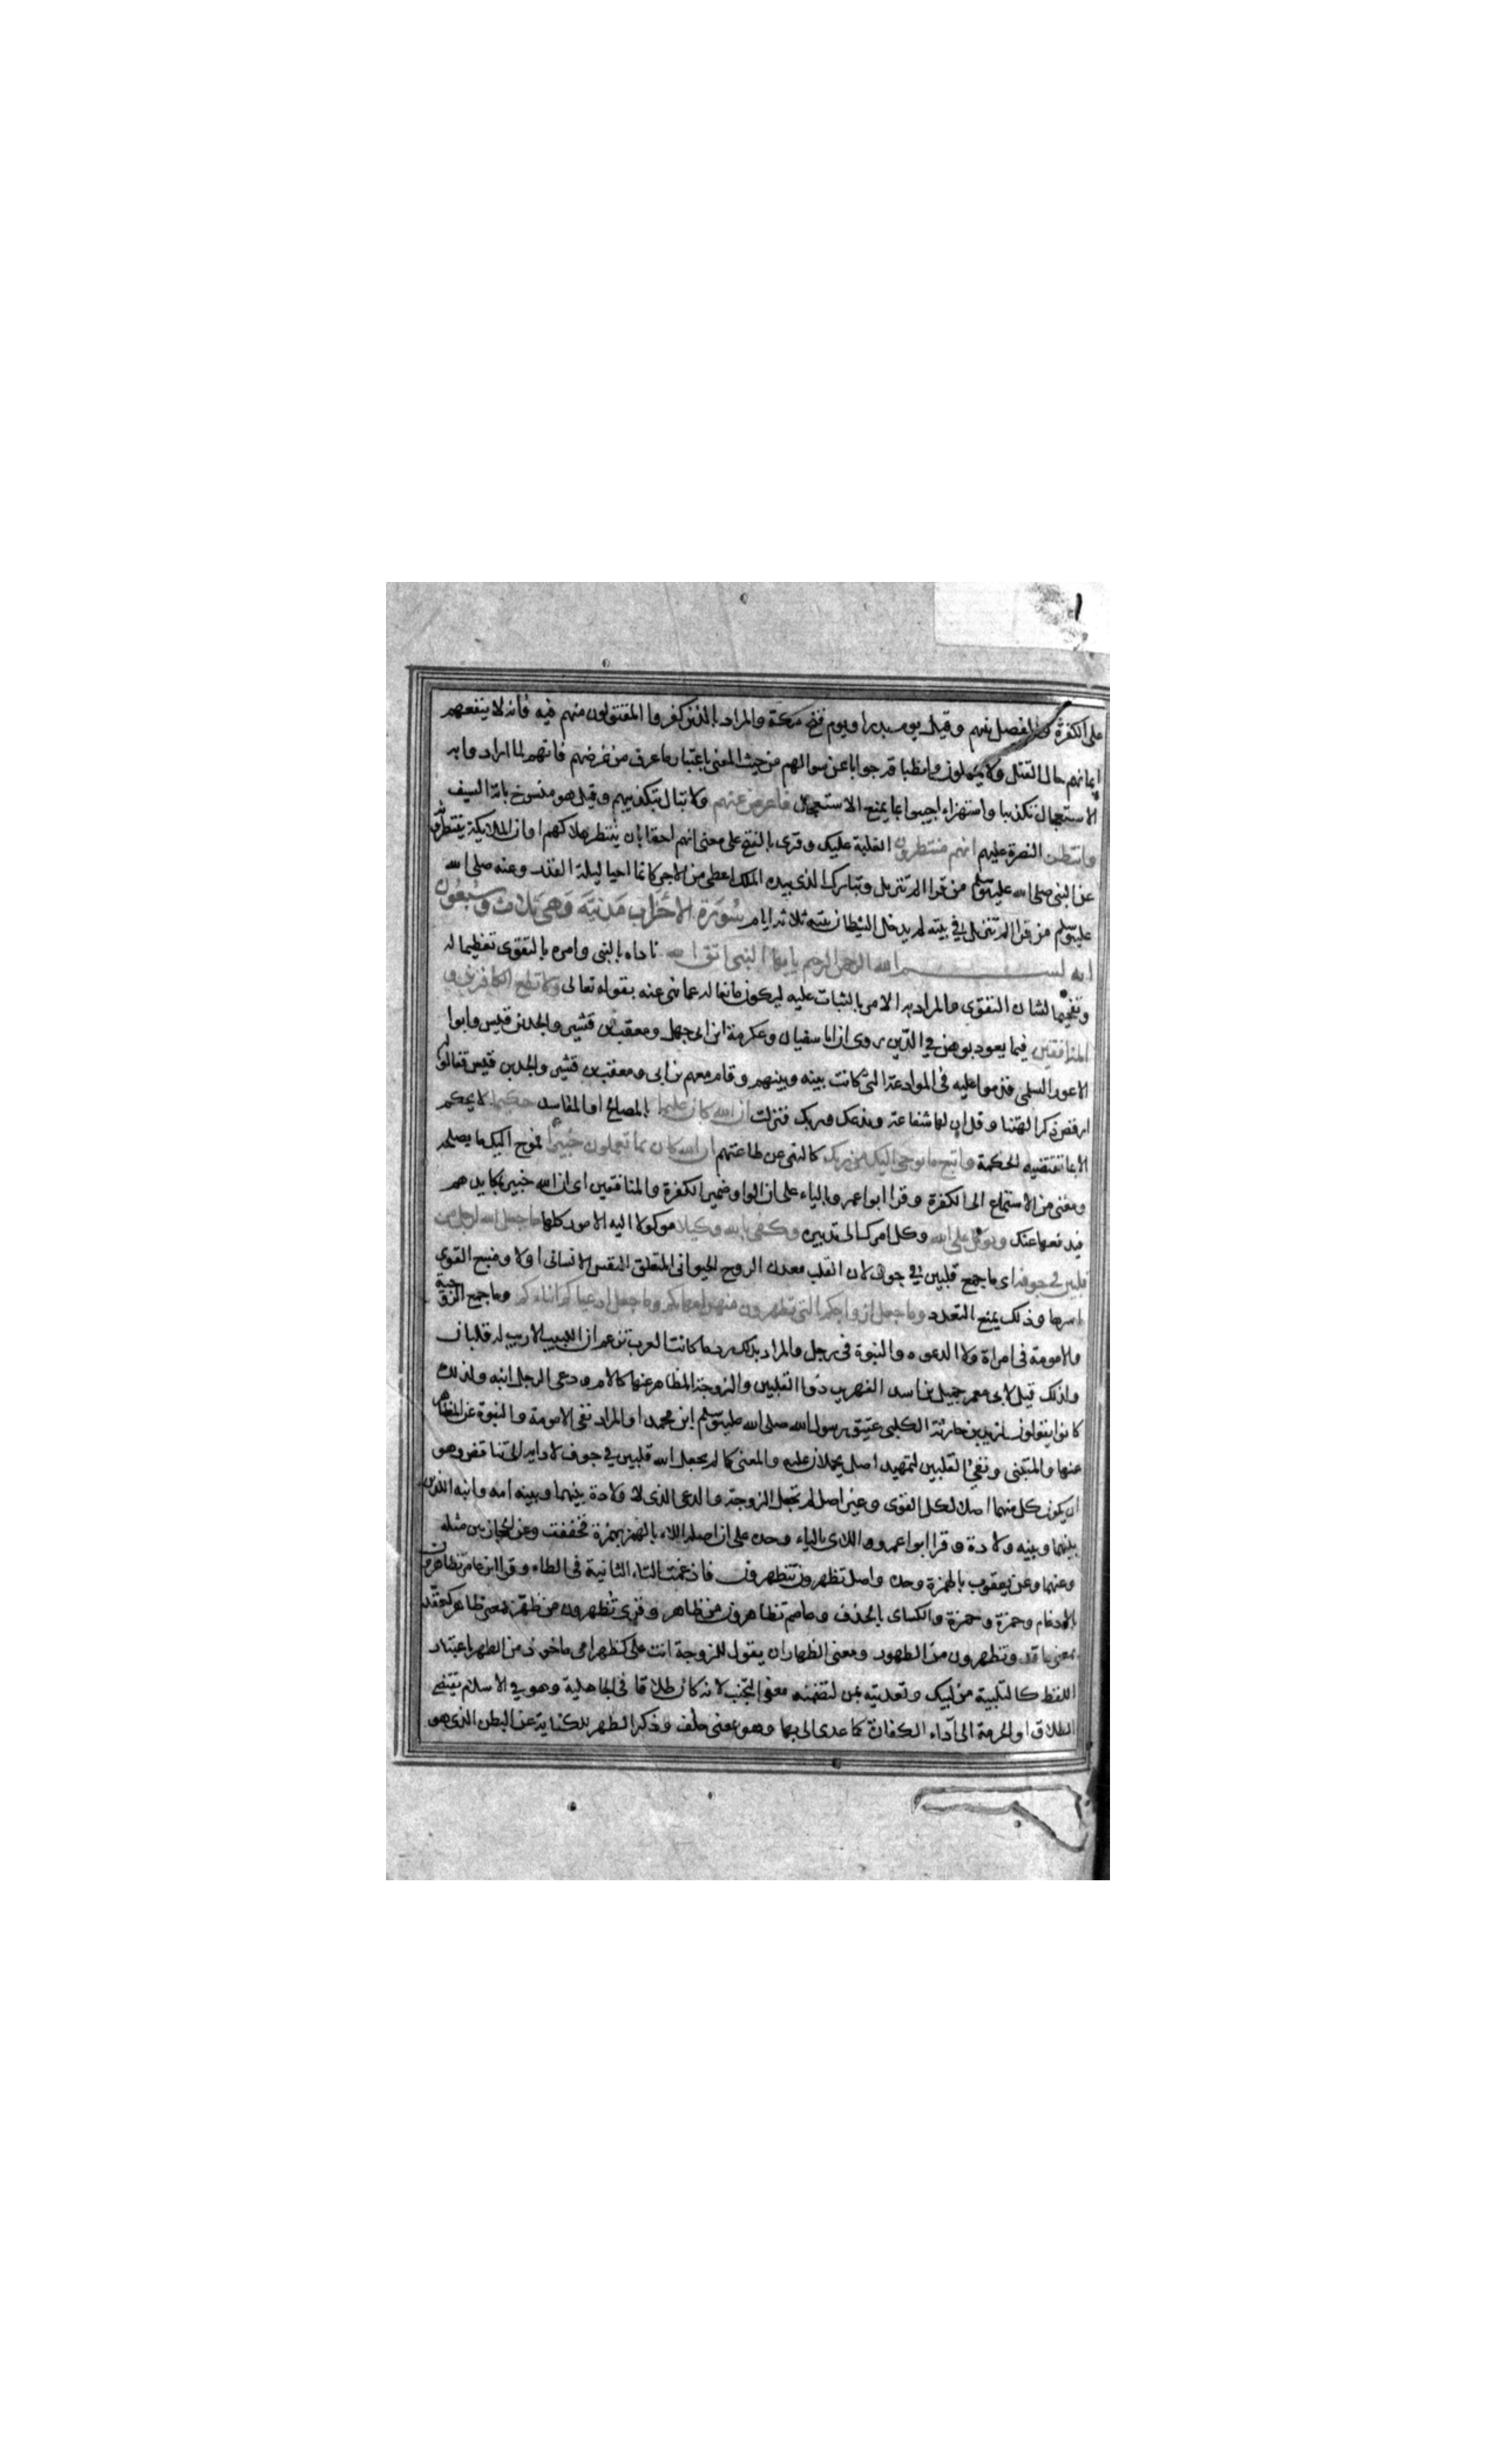 على الكفرة والفصل بينهم وقيل يوم بدر او يوم فتح مكة والمراد بالذين كفروا المقتولون منهم فيه فانه لا ينفعهم
ايمانهم حال القتل ولا يمهلون وانطباقه جوابا عن سوالهم من حيث المعنى باعتبار ما عرف من غرضهم فانهم لما ارادوا به
الاستعجال تكذيبا واستهزاء اجيبوا بما يمنع الاستعجال فاعرض عنهم ولا تبال بتكذيبهم وقيل هو منسوخ باية السيف
وانتظر النصرة عليهم انهم منتظرون الغلبة عليك وقرى بالفتح على معنى انهم احقا بان ينتظر هلاكهم او ان الملايكة ينتظرونه
عن النبى صلى الله عليه وسلم من قرا الم تنزيل وتبارك الذى بيده الملك اعطى من الاجر كانما احيا ليلة القدر وعنه صلى الله
عليه وسلم من قرا الم تنزيل في بيته لم يدخل الشيطان بيته ثلاثة ايام سورة الاحزاب مدنية وهى ثلاث وسبعون
اية بسم الله الرحمن الرحيم يا يها النبى اتق الله ناداه بالنبى وامره بالتقوى تعظيما له
وتفخيما لشان التقوى والمراد به الامر بالثبات عليه ليكون مانعا له عما نهى عنه بقوله تعالى ولا تطع الكافرين و
المنافقين فيما يعود بوهن في الدين روى ان ابا سفيان وعكرمة ابن ابى جهل ومعقب بن قشير والجد بن قيس وابوا
الاعور السلمى قدموا عليه فى الموادعة التى كانت بينه وبينهم وقام معهم بن ابى ومعقب بن قشير والجد بن قيس فقالوا له
ارفض ذكر الهتنا وقل ان لها شفاعة وندعك وربك فنزلت ان الله كان عليما بالمصالح والمفاسد حكيما لا يحكم
الا بما تقتضيه الحكمة واتبع ما يوحى اليك من ربك كالنهى عن طاعتهم ان الله كان بما تعملون خبيرا فموح اليك ما يصلحه
ومغنى من الاستماع الى الكفرة وقرا ابوا عمرو بالياء على ان الواو ضمير الكفرة والمنافقين اى ان الله خبير بمكايدهم
فيدفعها عنك وتوكل على الله وكل امرك الى تدبيره وكفى بالله وكيلا موكولا اليه الامور كلها ما جعل الله لرجل من
قلبين في جوفه اى ما جمع قلبين في جوف لان القلب معدن الروح الحيوانى المتعلق النفس الانسانى اولا ومنبع القوى
باسرها وذلك يمنع التعدد وما جعل ازواجكم اللتى تظهرون منهن امهاتكم وما جعل ادعياكم ابناءكم وما جمع الزوجية
والامومة فى امراة ولا الدعوه والنبوة فى رجل والمراد بذلك رد ما كانت العرب تزعم ان اللبيب الاريب له قلبان
ولذلك قيل لابى معمر جميل بن اسد الفهرى ذوا القلبين والزوجة المظاهر عنها كالام ودعى الرجل ابنه ولذلك
كانوا يقولون لزيد بن حارثة الكلبى عتيق رسول الله صلى الله عليه وسلم ابن محمد او المراد نفى الامومة والنبوة عن المظاهر
عنها والمتبنى ونفي القلبين لتمهيد اصل يحملان عليه والمعنى كما لم يجعل الله قلبين في جوف لادايه الى تناقض وهو
ان يكون كل منهما اصلا لكل القوى وغير اصل لم تجعل الزوجة والدعى الذى لا ولادة بينهما وبينه امه وابنه اللذين
بينهما وبينه ولادة وقرا ابوا عمرو واللاى بالياء وحده على ان اصله اللاء بالهمز بهمزة فخففت وعن الحجازيين مثله
وعنهما وعن يعقوب بالهمزة وحده واصل تظهرون تتظهرون فادغمت التاء الثانية فى الظاء وقرا ابن عامر تظاهرون
بالادغام وحمزة وحمزة والكساى بالحذف وعاصم تظاهرون من ظاهر وقرى تظهرون من ظهر بمعنى ظاهر كعقد
بمعنى عاقد وتظهرون من الظهور ومعنى الظهار ان يقول للزوجة انت على كظهر امى ماخوذ من الظهر باعتبار
اللفظ كالتلبية من لبيك وتعديته بمن لتضمنه معنى التجنب لانه كان طلاقا فى الجاهلية وهو في الاسلام يقتضي
الطلاق او الحرمة الى آداء الكفارة كما عدى الى بها وهو بمعنى حلف وذكر الظهر للكناية عن البطن الذى هو